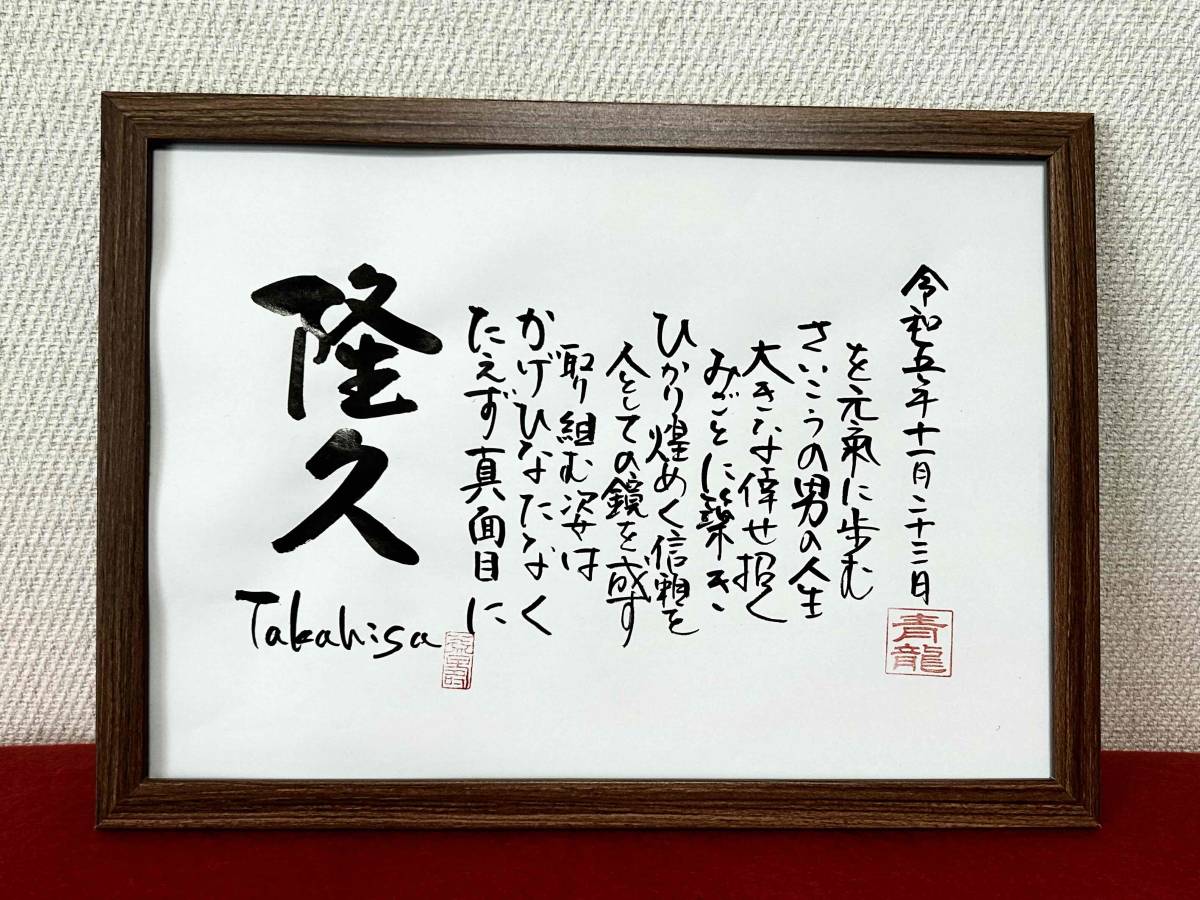 隆久
Takahisa
たえず真面目に
かげひなたなく
取り組む姿は
人としての鏡を成す
ひかり煌めく信頼を
みごとに築き
大きな倖せ招く
さいこうの男の人生
を元氣に歩む
令和五年十一月二十三日
青龍